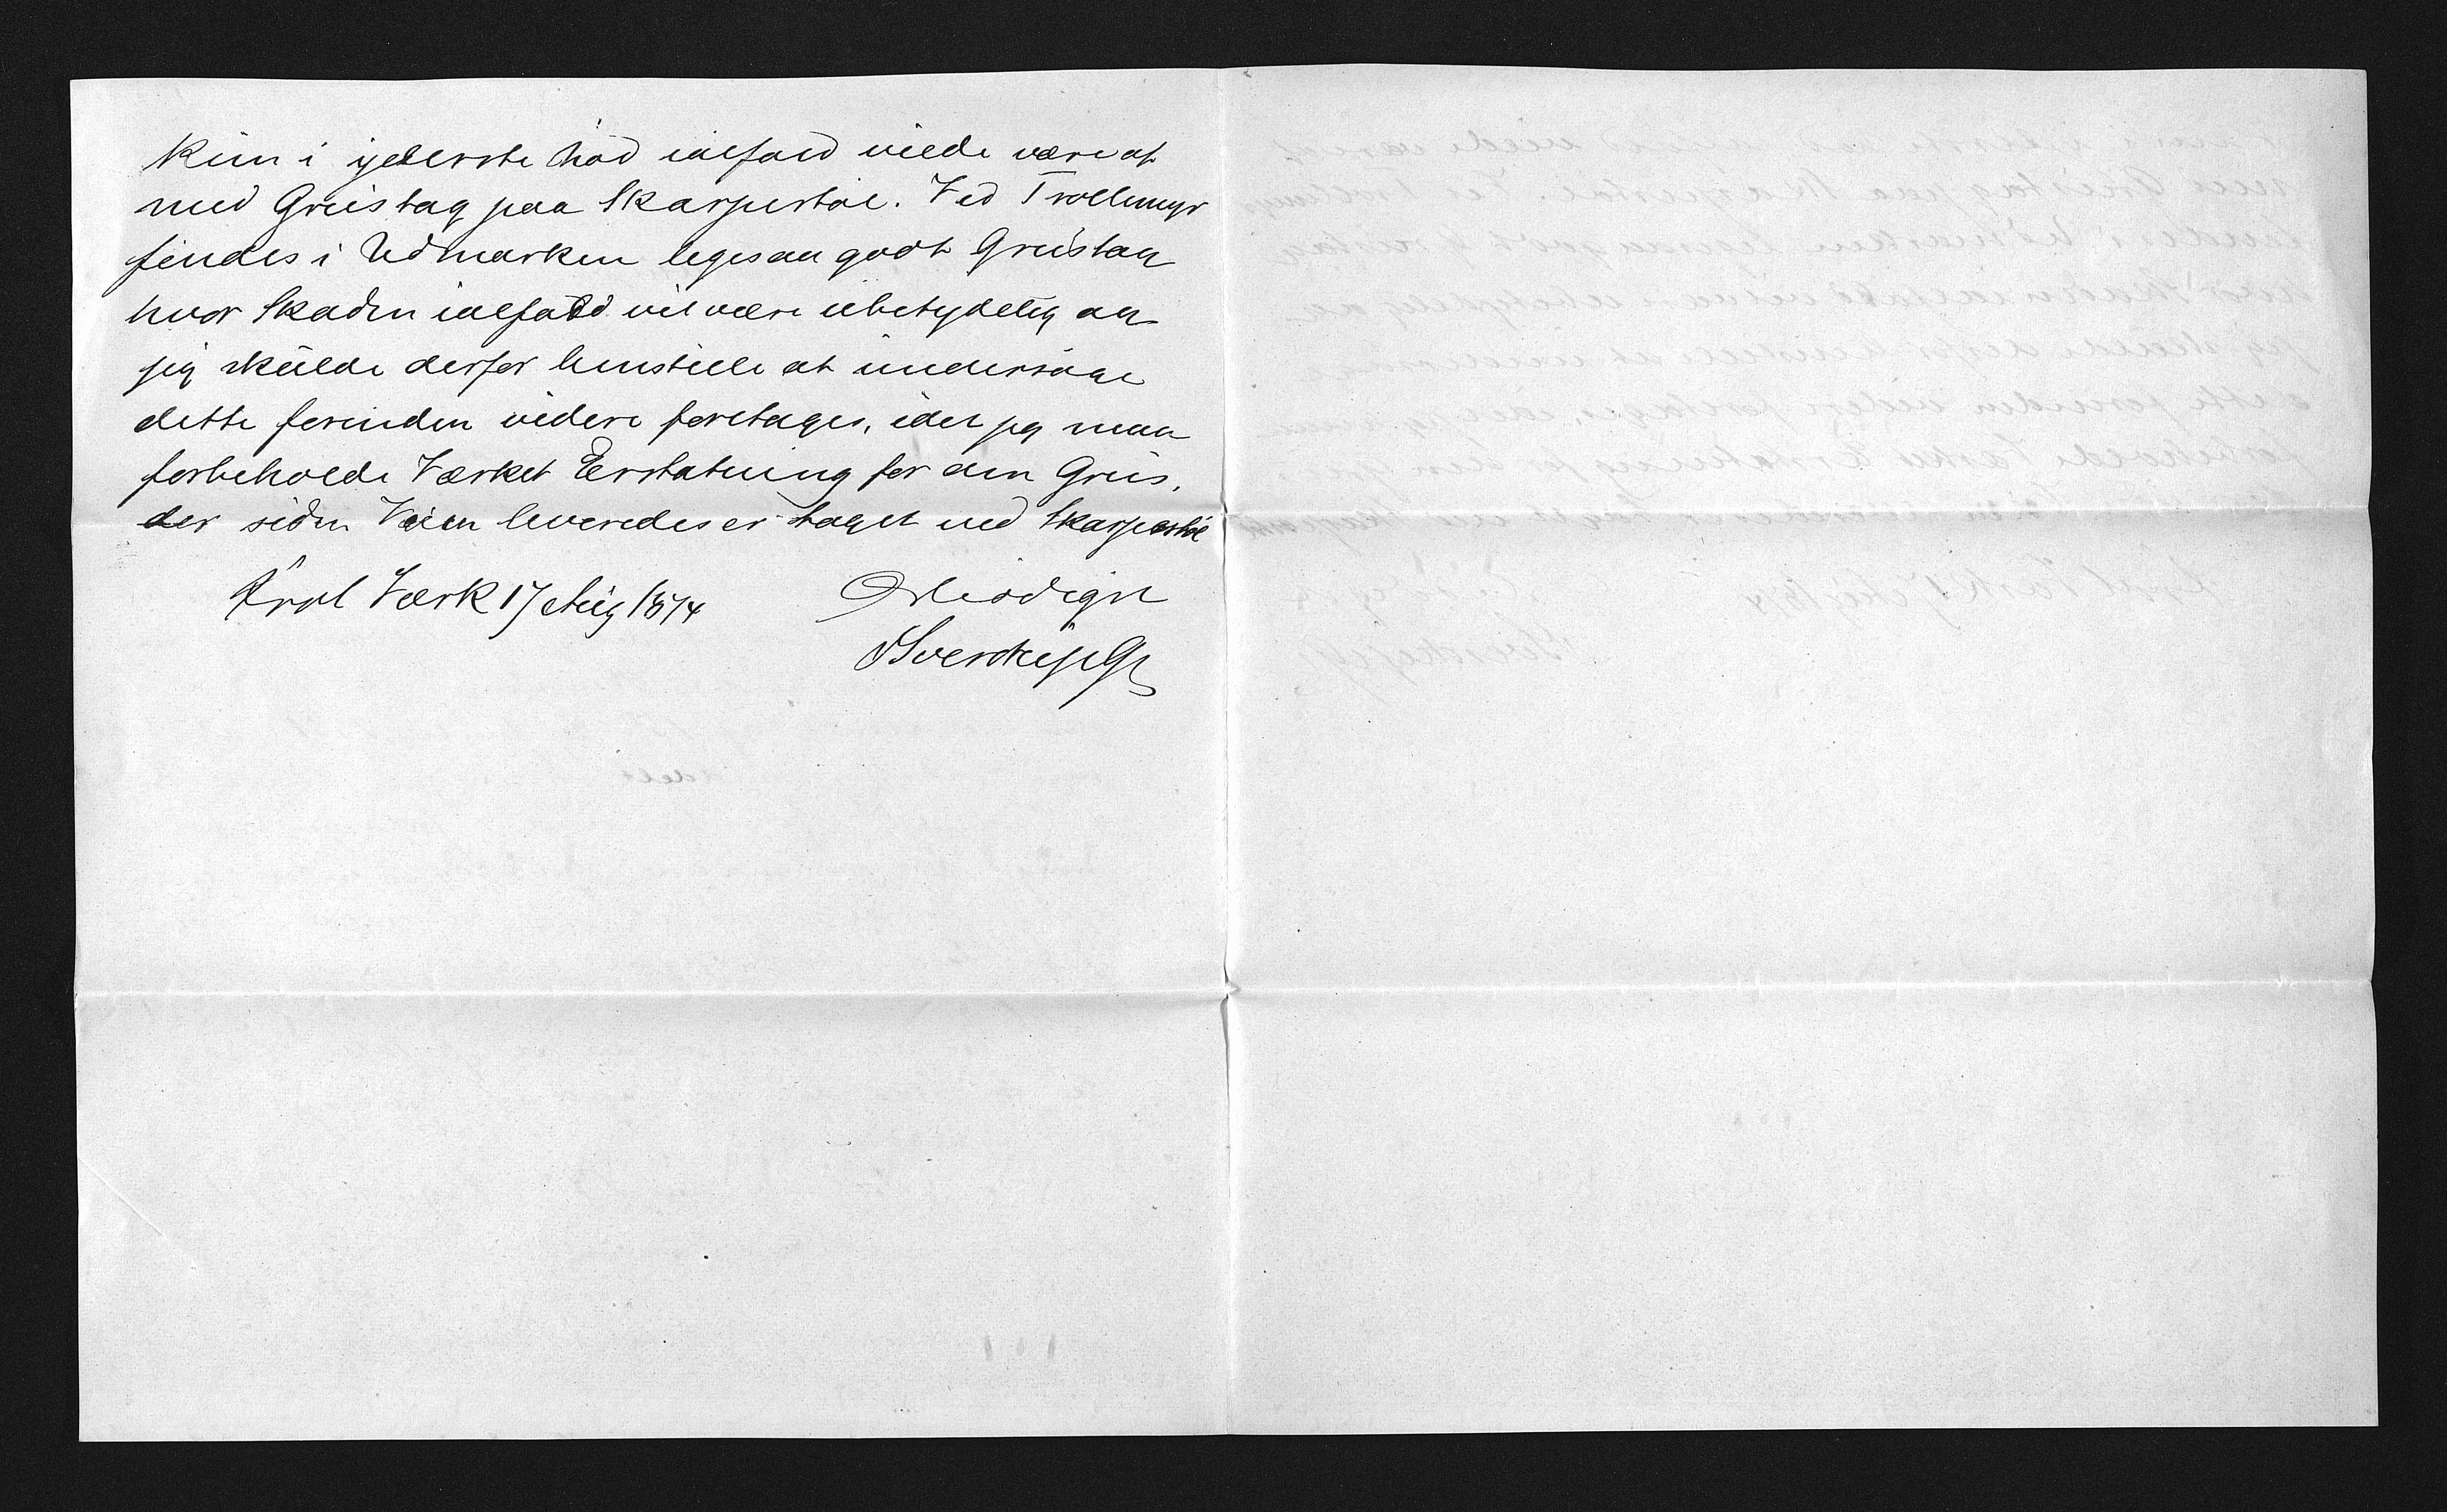 kun i yderste Nød ialfald vilde være at
med Gruistag paa Skarpestøl. Ved Trollmyr
findes i Udmarken ligesaa godt Gruistag
hvor Skaden ialfald vil være ubetydelig og
jeg skulde derfor henstille at undersøge
dette forinden videre foretages, idet jeg maa
forbeholde Værket Erstatning for den Gruis,
der siden Veien leveredes er taget ved Skarpestøl
Værk 17 Aug 1874
Ærbødigst